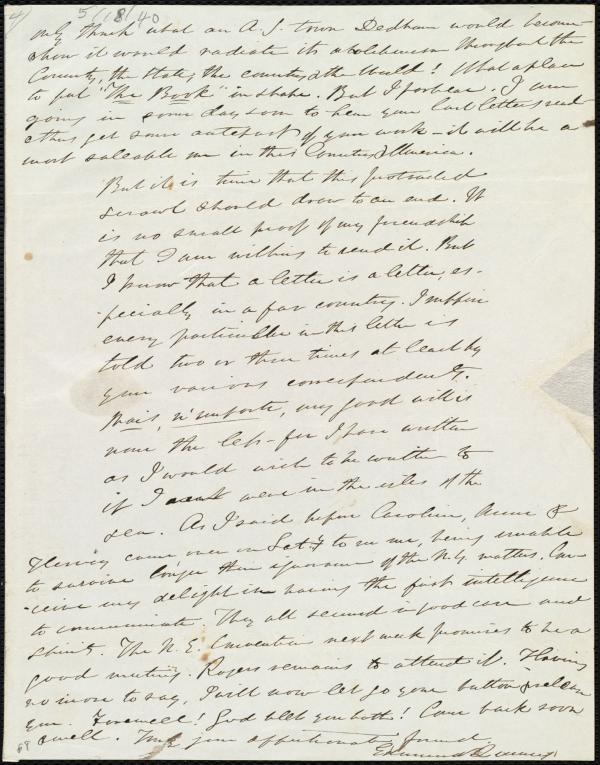 4)
5/18/40
only think what an A.S. town Dedham would become
how it would radiate its abolitionism throughout the
County, the State, the country & the World! What a place
to put "The Book" in shape. But I forbear. I am
going in some day soon to hear your last letters read
& thus get some antepast of your work - it will be a
most saleable one in this Country & America.
But it is time that this protracted
scrawl should draw to an end. It
is no small proof of my friendship
that I am willing to send it. But
I know that a letter is a letter, es-
pecially in a far country. I suppose
every particular in this letter is
told two or three times at least by
your various correspondents.
Mais, n'importe, my good will is
none the less - for I have written
as I would wish to be written to
if I were in the isles of the
sea. As I said before Caroline, Anne &
Hervey came over on Sat.y to see me, being unable
to survive longer than ignorance of the N.Y. matters. Con-
ceive my delight in having the first intelligence
to communicate. They all seemed in good case and
spirits. The N.E. Convention next week promises to be a
good meeting. Rogers remains to attend it. Having
no more to say, I will now let go your button & release
you. Farewell! God bless you both! Come back soon
& well. Your affectionate friend
Edmund Quincy